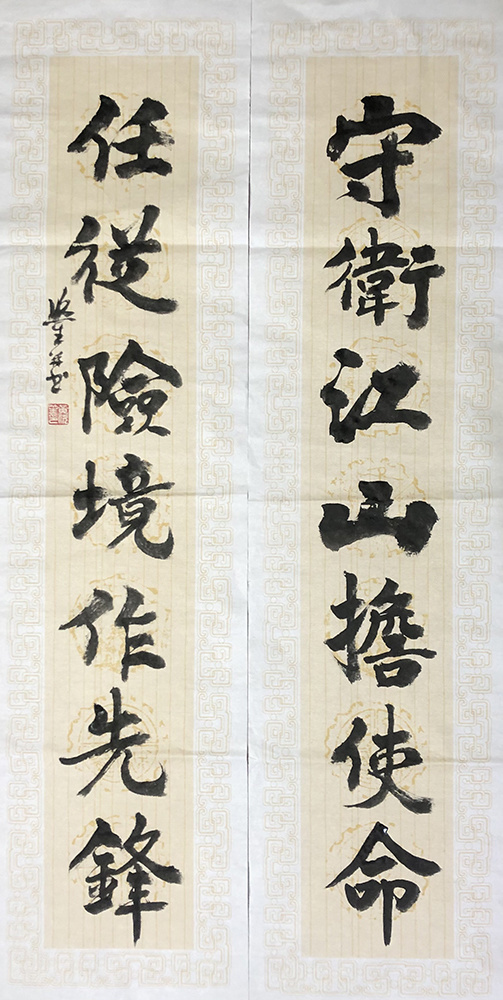 守衛江山擔使命
任從險境作先鋒